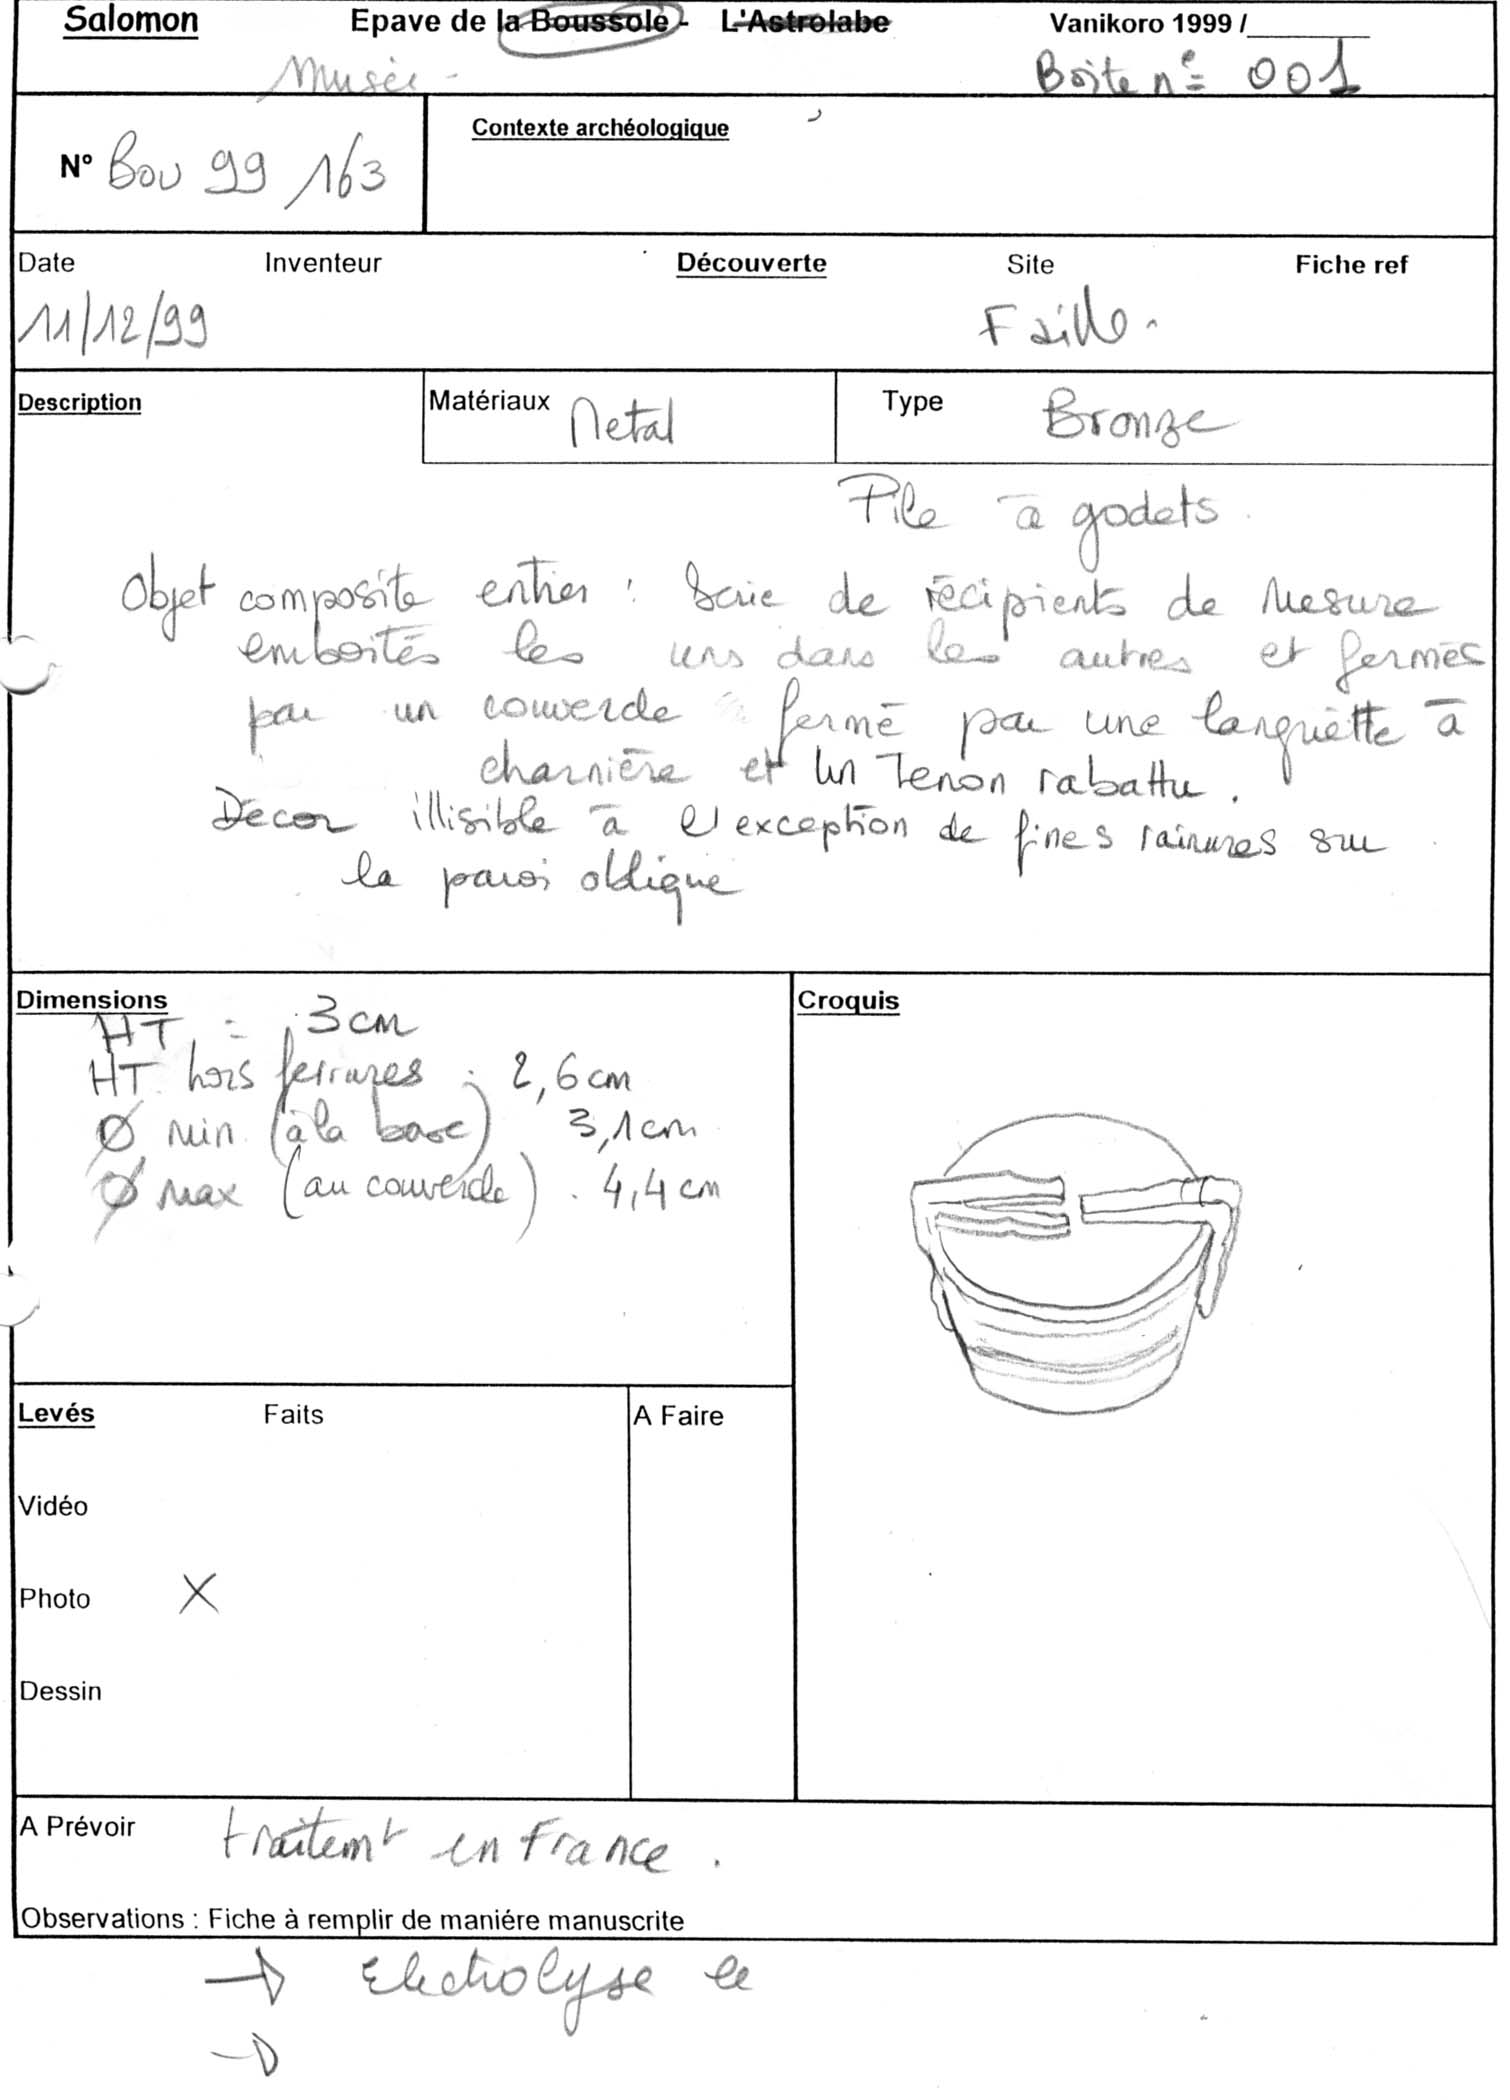 Salomon Epave de la Boussole - L'Astrolabe Vanikoro 1999 /________
Musée - Boite n° 001
N° Bou 99 163 Contexte archéologique
Date Inventeur Découverte Site Fiche ref
11/12/99 Faille.
Description Matériaux Metal Type Bronze
Pile à godets.
Objet composite entier : Serie de récipients de Mesure
emboités les uns dans les autres et fermés
par un couvercle fermé par une languette à
charnière et un Tenon rabattu.
Décor illisible à l'exception de fines rainures sur
la paroi oblique
Dimensions
HT = 3 cm
HT hors ferrures : 2,6 cm
Ø Min (à la base) 3,1 cm
Ø Max (au couvercle) . 4,4 cm
Croquis
Levés Faits A Faire
Vidéo
Photo X
Dessin
A Prévoir traitemt en France.
Observations : Fiche à remplir de maniére manuscrite
→ Electrolyse le
→